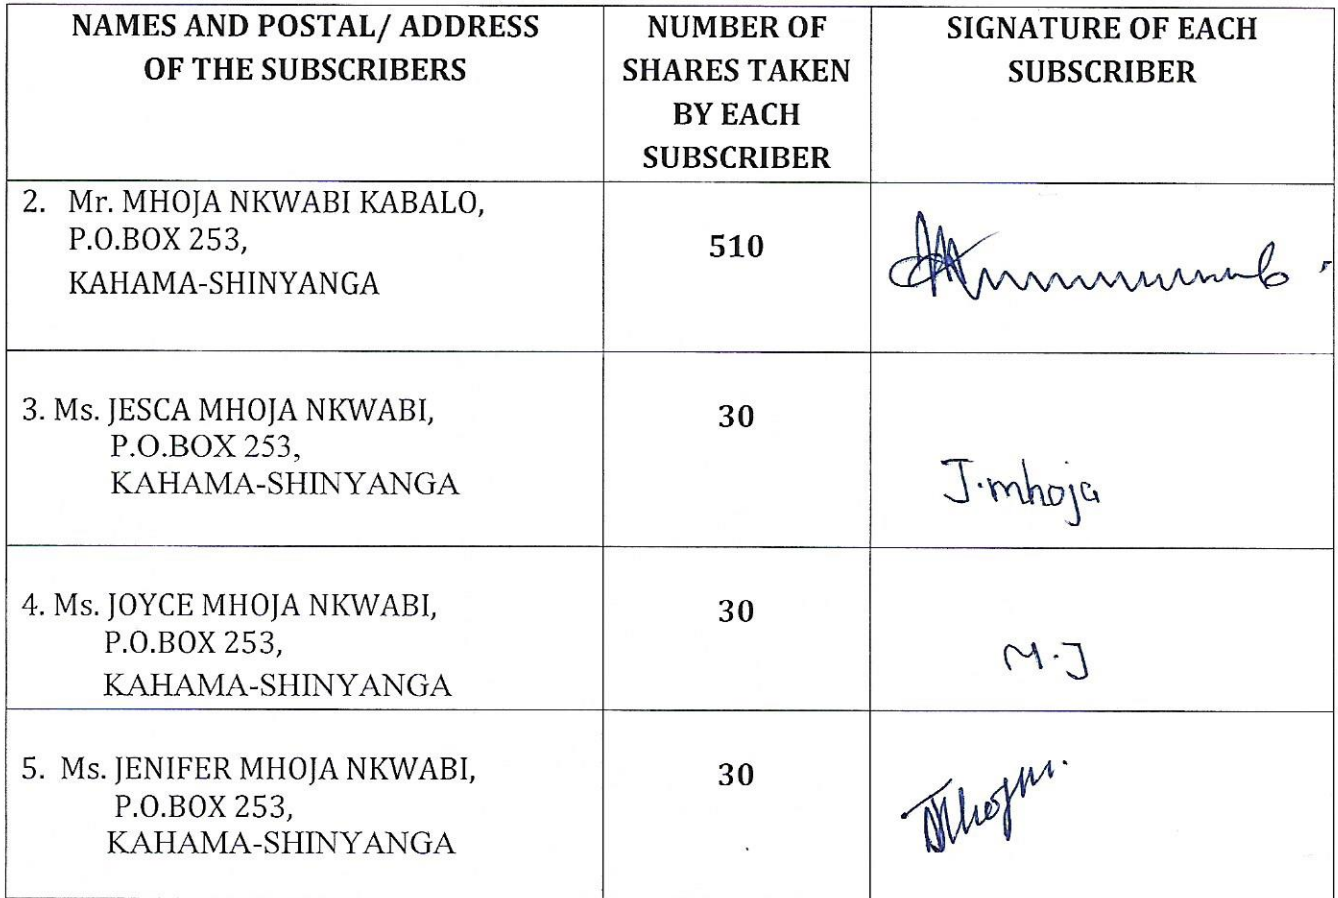 NAMES AND POSTAL/ ADDRESS
OF THE SUBSCRIBERS
NUMBER OF
SHARES TAKEN
BY EACH
SUBSCRIBER
SIGNATURE OF EACH
SUBSCRIBER
2. Mr. MHOJA NKWABI KABALO,
P.O.BOX 253,
KAHAMA-SHINYANGA
510
3. Ms. JESCA MHOJA NKWABI,
P.O.BOX 253,
KAHAMA-SHINYANGA
30
J.mhoja
4. Ms. JOYCE MHOJA NKWABI,
P.O.BOX 253,
KAHAMA-SHINYANGA
30
M.J
5. Ms. JENIFER MHOJA NKWABI,
P.O.BOX 253,
KAHAMA-SHINYANGA
30